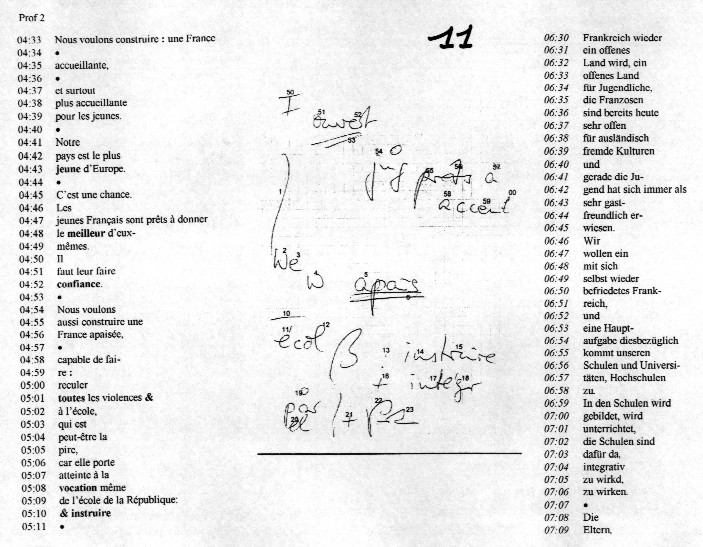 Prof 2
04:33 Nous voulons construire : une France
04:34 •
04:35 accueillante,
04:36 •
04:37 et surtout
04:38 plus accueillante
04:39 pour les jeunes.
04:40 •
04:41 Notre
04:42 pays est le plus
04:43 jeune d'Europe.
04:44 •
04:45 C'est une chance.
04:46 Les
04:47 jeunes Français sont prêts à donner
04:48 le meilleur d'eux-
04:49 mêmes.
04:50 Il
04:51 faut leur faire
04:52 confiance.
04:53 •
04:54 Nous voulons
04:55 aussi construire une
04:56 France apaisée,
04:57 •
04:58 capable de fai-
04:59 re :
05:00 reculer
05:01 toutes les violences &
05:02 à l'école,
05:03 qui est
05:04 peut-être la
05:05 pire,
05:06 car elle porte
05:07 atteinte à la
05:08 vocation même
05:09 de l'école de la République:
05:10 & instruire
05:11 •
11
50
I
51 52
ouvert
53
54
55 56 57
prêts a
58 59 00
accent
1
2 3
We
4 5
W apais
6
10
11/ 12
écol
13 14 15
β instruire
16 17 18
+ intégr
19
par
20 21 22 23
el
06:30 Frankreich wieder
06:31 ein offenes
06:32 Land wird, ein
06:33 offenes Land
06:34 für Jugendliche,
06:35 die Franzosen
06:36 sind bereits heute
06:37 sehr offen
06:38 für ausländisch
06:39 fremde Kulturen
06:40 und
06:41 gerade die Ju-
06:42 gend hat sich immer als
06:43 sehr gast-
06:44 freundlich er-
06:45 wiesen.
06:46 Wir
06:47 wollen ein
06:48 mit sich
06:49 selbst wieder
06:50 befriedetes Frank-
06:51 reich,
06:52 und
06:53 eine Haupt-
06:54 aufgabe diesbezüglich
06:55 kommt unseren
06:56 Schulen und Universi-
06:57 täten, Hochschulen
06:58 zu.
06:59 In den Schulen wird
07:00 gebildet, wird
07:01 unterrichtet,
07:02 die Schulen sind
07:03 dafür da,
07:04 integrativ
07:05 zu wirkd,
07:06 zu wirken.
07:07 •
07:08 Die
07:09 Eltern,